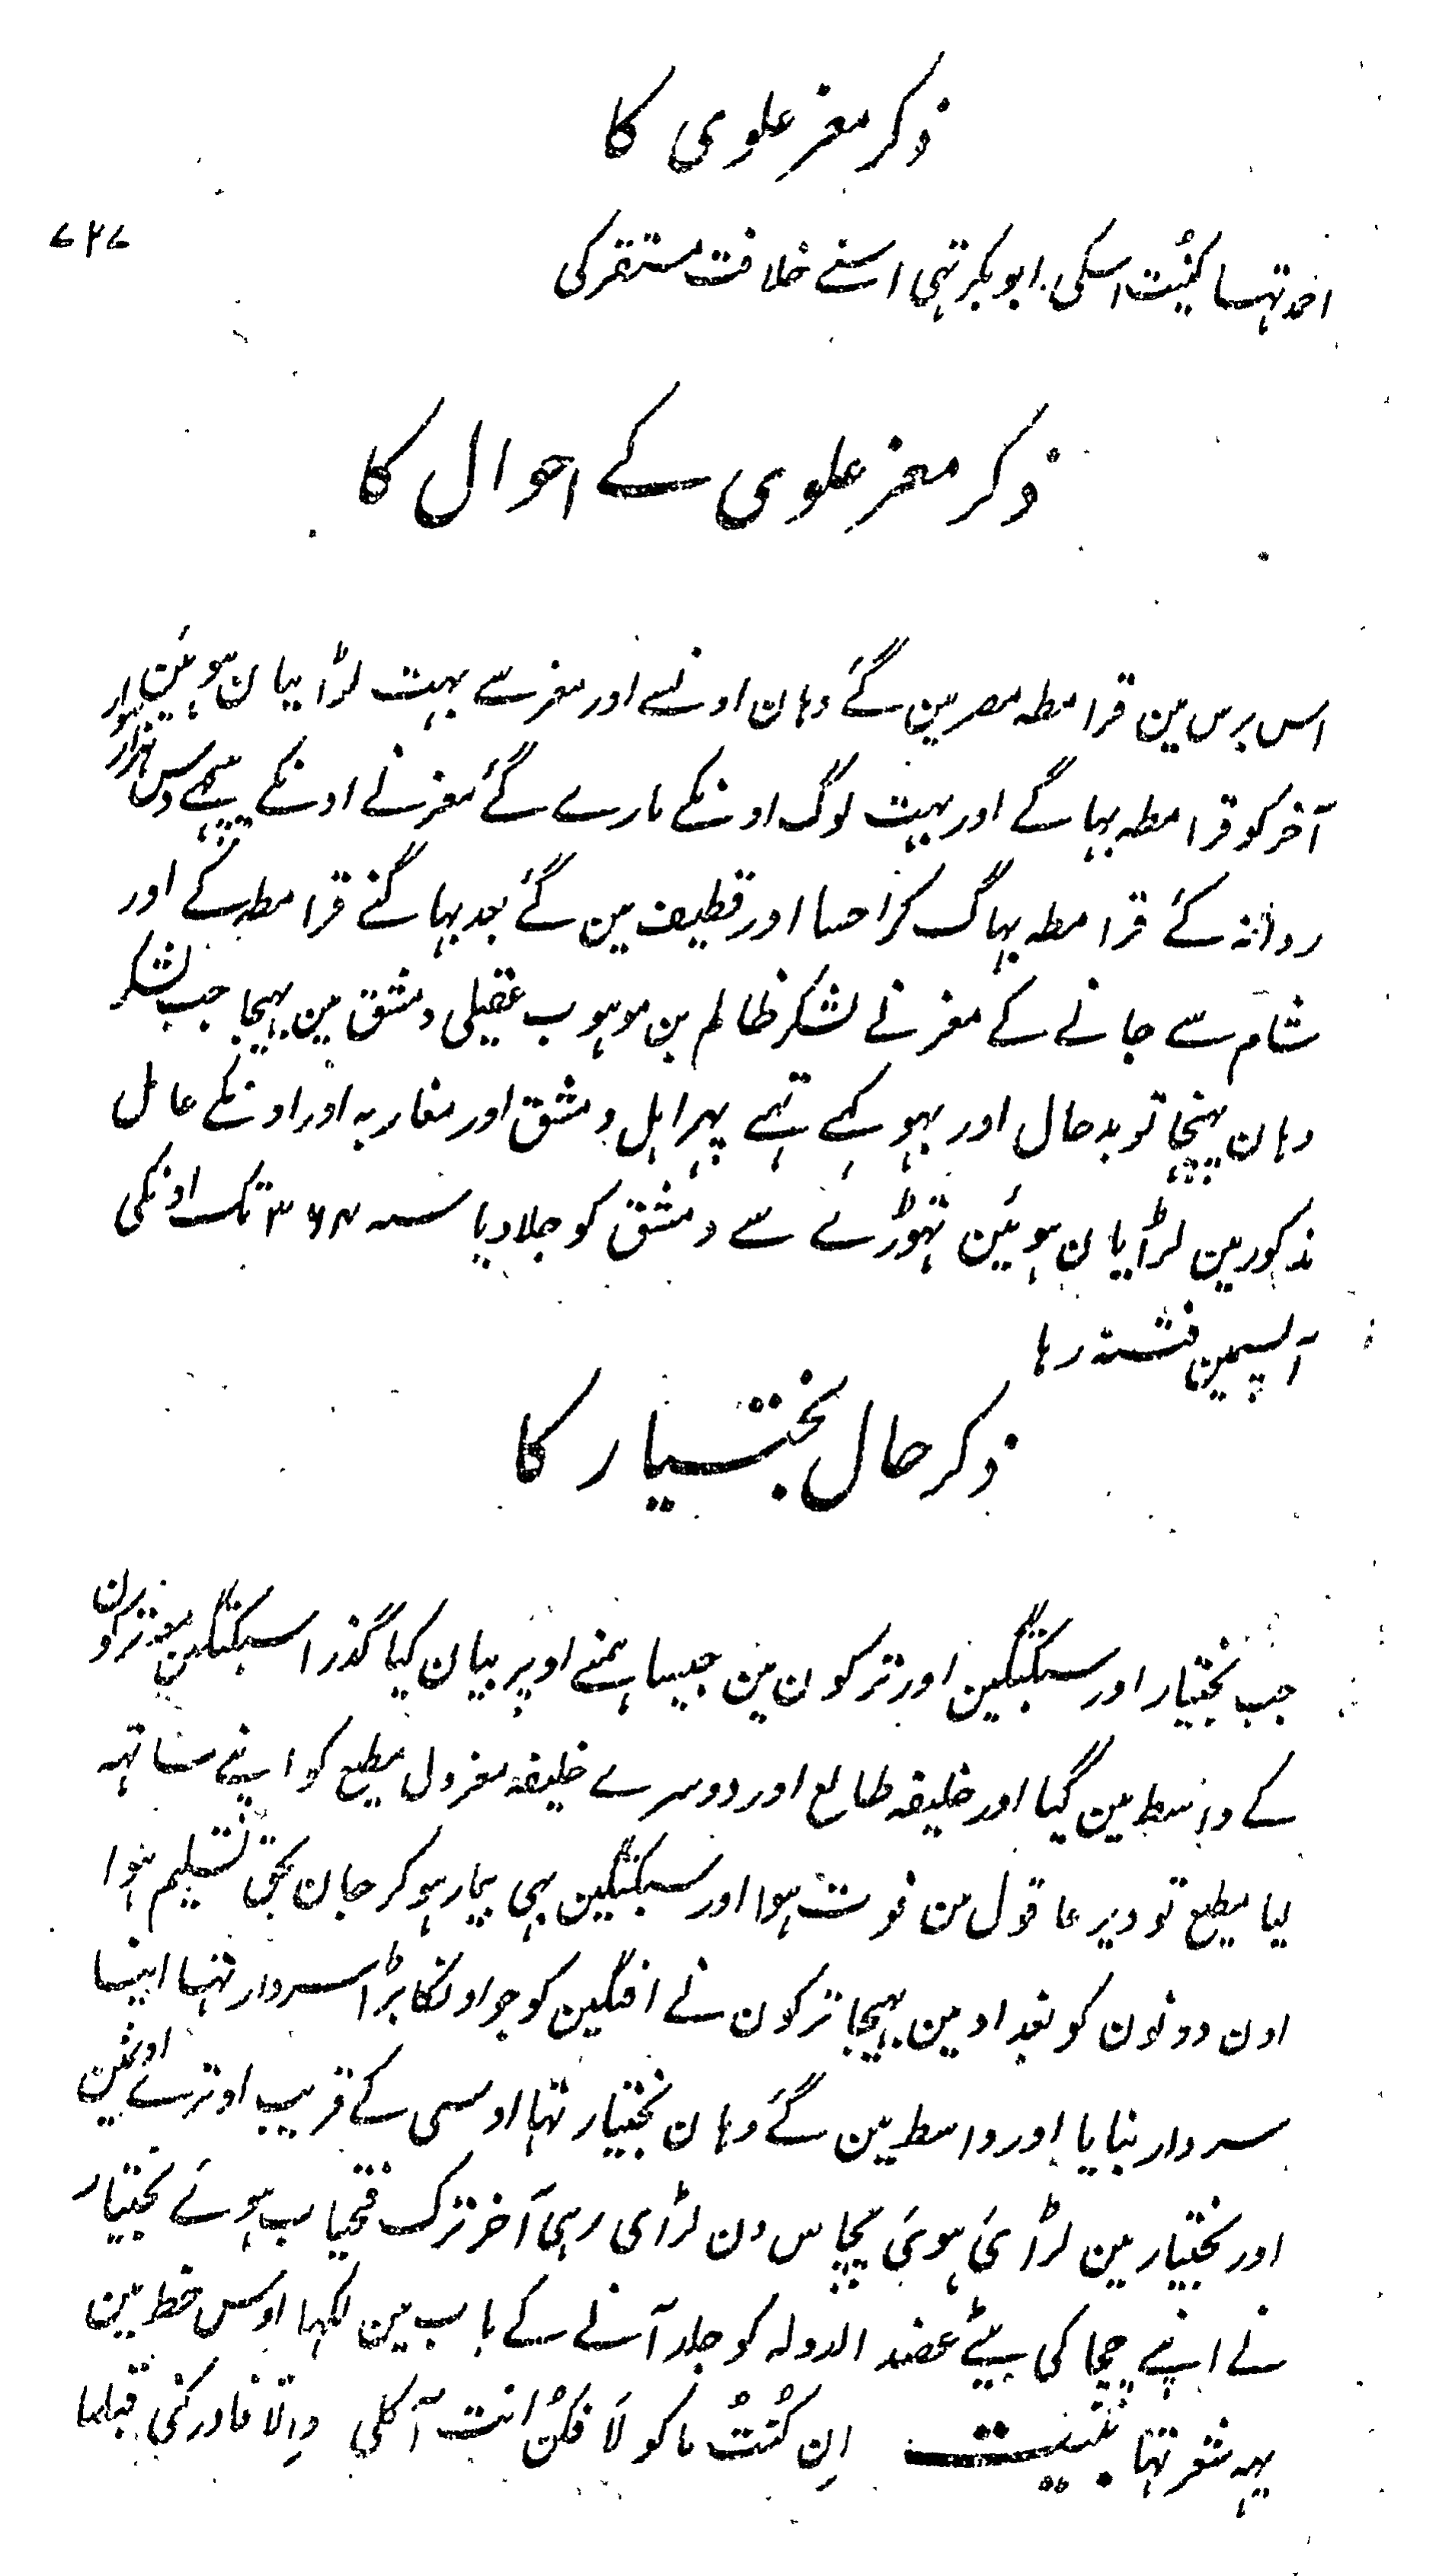 ذکر معز علوی کا
۷۴۷
احمد تہا کنیت اسکی ابو بکر تہی اسنے خلافت مستقر کی
ذکر معز علوی کے احوال کا
اس برس مین قرامطہ مصر مین گئے وہان اونسے اور معز سے بہت لڑائیان ہوئین
آخر کو قرامطہ بہاگے اور بہت لوگ اونکے مارے گئے معز نے اونکے پیچہے دس ہزار سوار
روانہ کئے قرامطہ بہاگ کر احسا اور قطیف مین گئے بعد بہاگنے قرامطہ کے اور
شام سے جانے کے معز نے لشکر ظالم بن موہوب عقیلی دمشق مین بہیجا جب لشکر
وہان پہنچا تو بدحال اور بہوکہے تہے پہر اہل دمشق اور مغاربہ اور اونکے عامل
مذکور مین لڑائیان ہوئین تہوڑے سے دمشق کو جلا دیا سنہ ۳۶۴ تک اونکی
آپسمین فتنہ رہا
ذکر حال بختیار کا
جب بختیار اور سبکتگین اور ترکون مین جیسا ہمنے اوپر بیان کیا گذرا سبکتگین معہ ترکون
کے واسط مین گیا اور خلیفہ طائع اور دوسرے خلیفہ معزول مطیع کو اپنے ساتہہ
لیا مطیع تو دیر عاقول من فوت ہوا اور سبکتگین بہی بیمار ہوکر جان بحق تسلیم ہوا
اون دونون کو بغداد مین بہیجا ترکون نے افتگین کو جو اونکا بڑا سردار تہا اپنا
سردار بنایا اور واسط مین گئے وہان بختیار تہا اوسی کے قریب اوترے اونمین
اور بختیار مین لڑائی ہوئی پچاس دن لڑائی رہی آخر ترک فتحیاب ہوئے بختیار
نے اپنے چچا کی بیٹے عضد الدولہ کو جلد آنے کے باب مین لکہا اوس خط مین
یہہ شعر تہا بیت ان کُنتُ ماکولا فکُنْ انت آکلی وإلّا فادرکنی قبلما